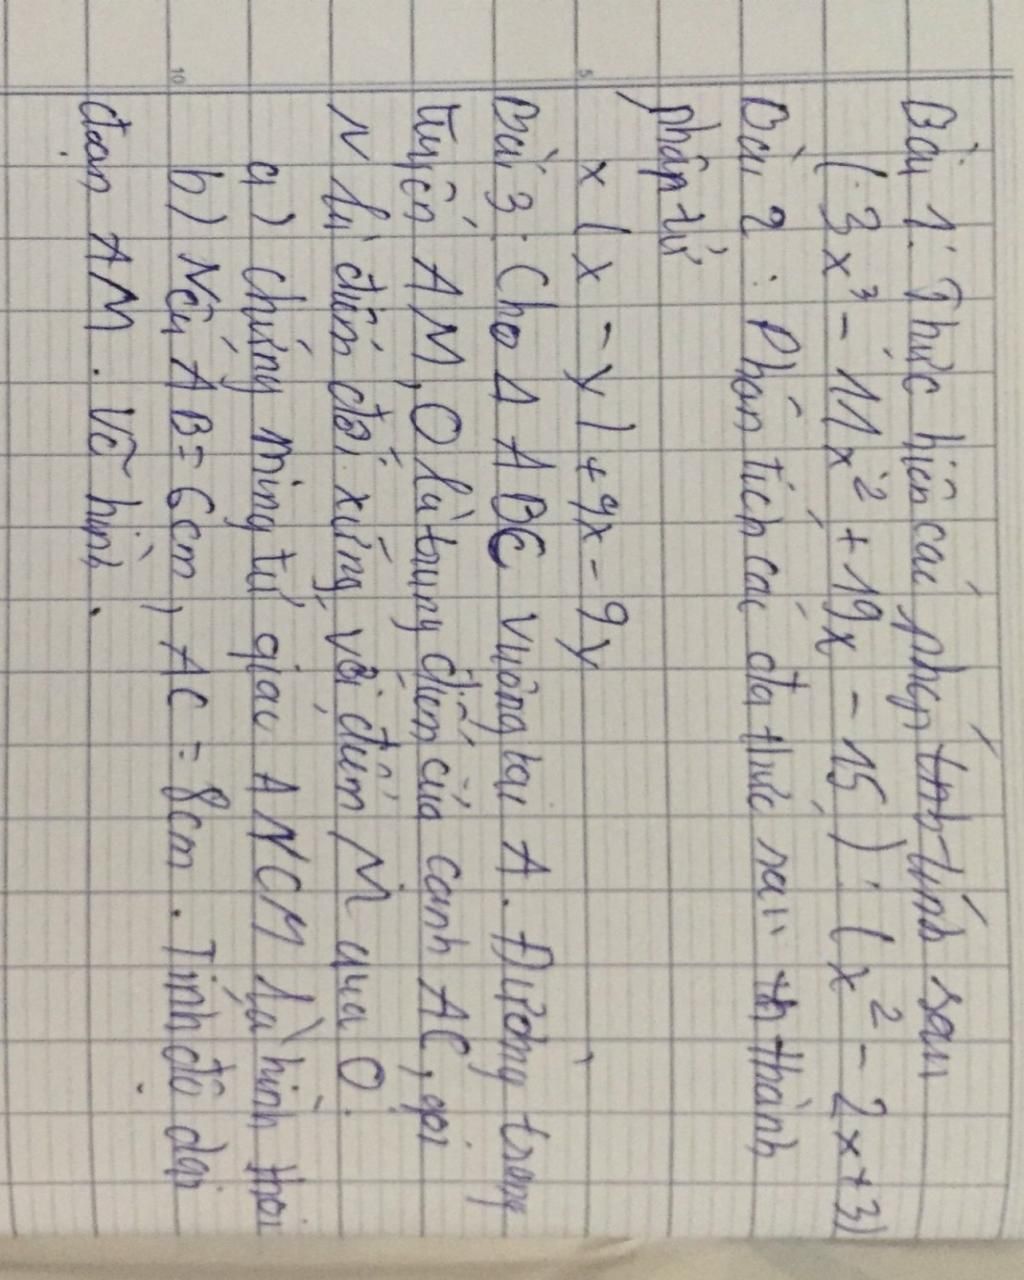 Bài 1: Thực hiện các phép tính sau
(3x³ - 11x² + 19x - 15) : (x² - 2x + 3)
Bài 2 : Phân tích các đa thức sau thành
phân tử
x (x - y) + 9x - 9y
Bài 3 : Cho Δ ABC vuông tại A. Đường trung
tuyến AM, O là trung điểm của cạnh AC, gọi
N là điểm đối xứng với điểm M qua O.
a) Chứng ming tứ giác ANCM là hình thoi
b) Nếu AB = 6cm, AC = 8cm. Tính độ dài
đoạn AM. Vẽ hình.
5
10